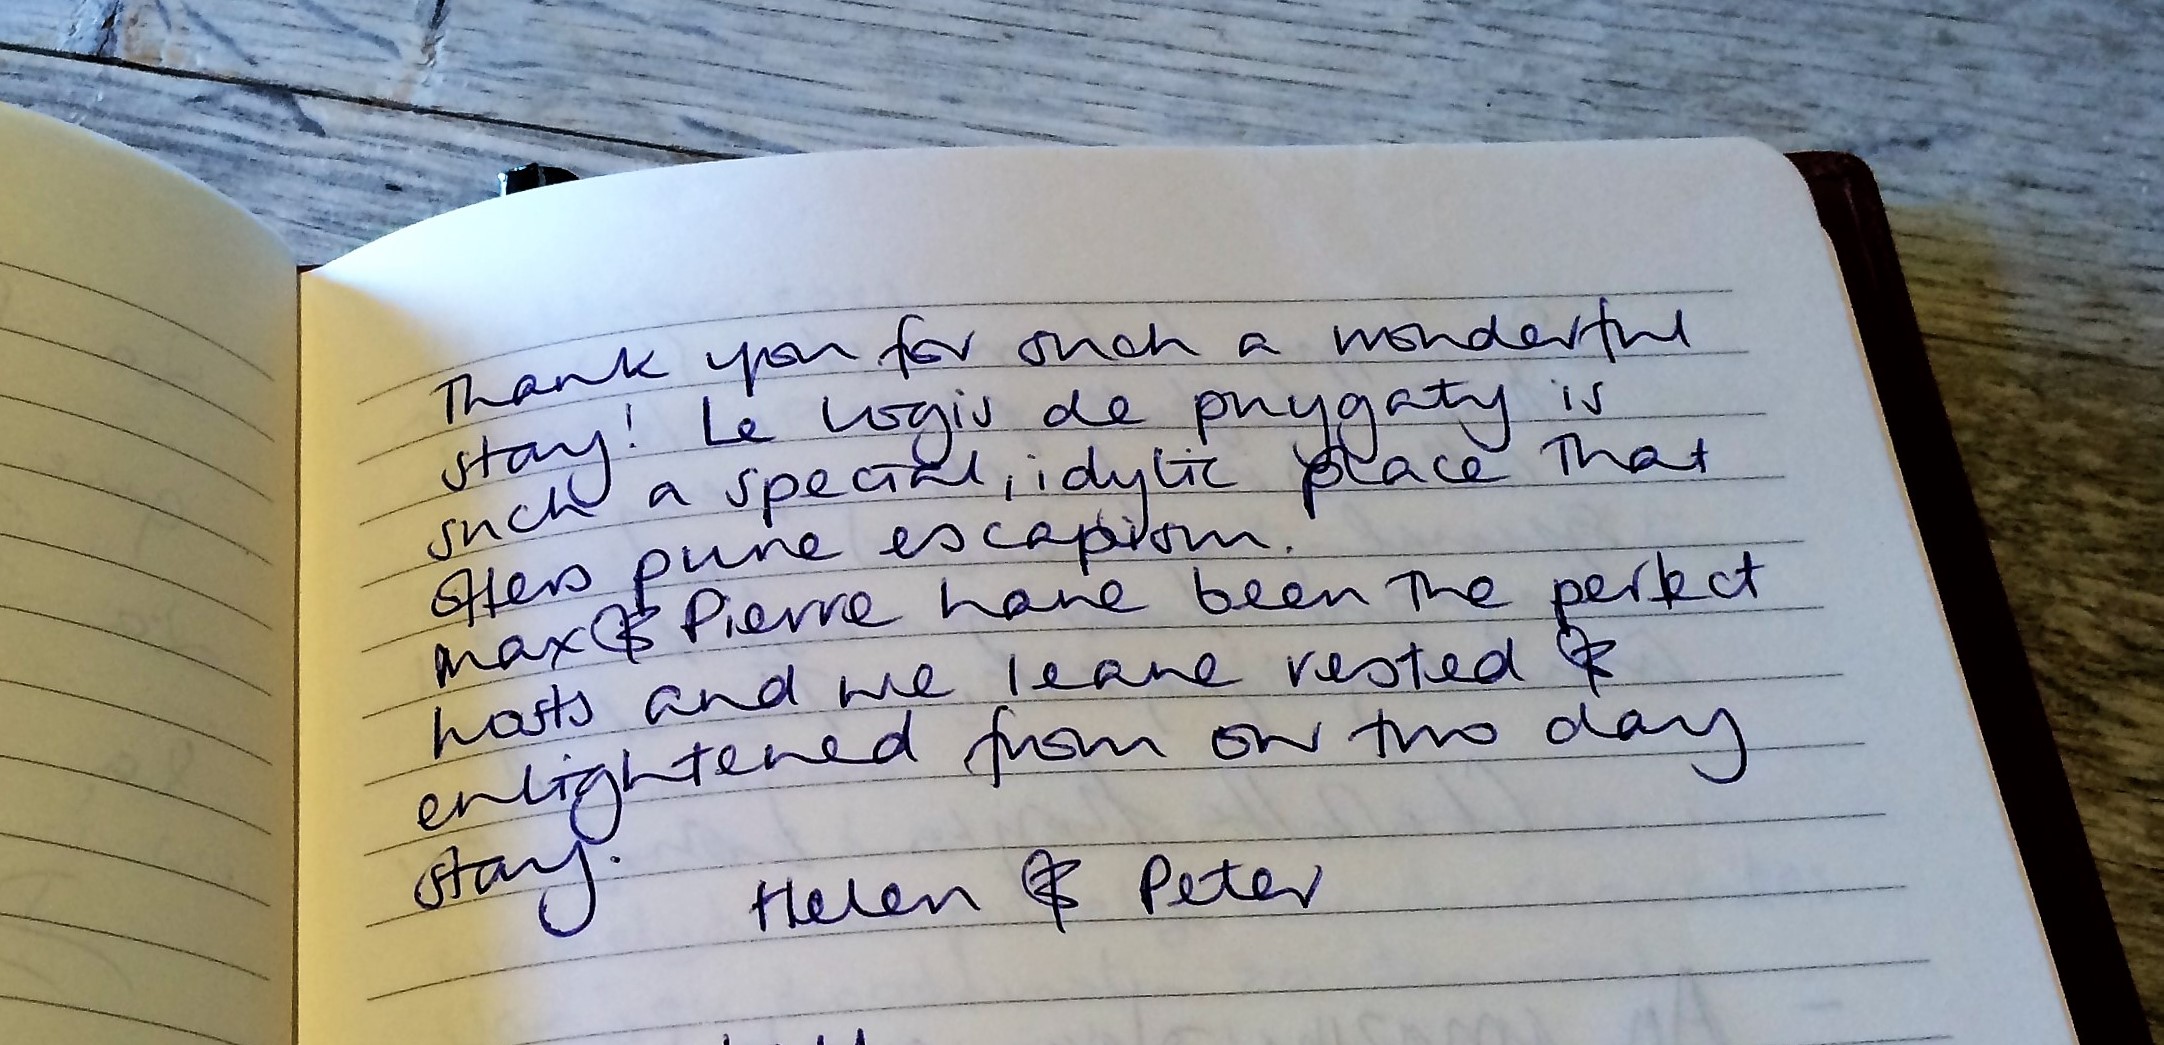 Thank you for such a wonderful
stay! Le Logis de puygaty is
such a special, idylic place that
offers pure escapism.
Max & Pierre have been the perfect
hosts and we leave rested &
enlightened from our two day
stay.
Helen & Peter